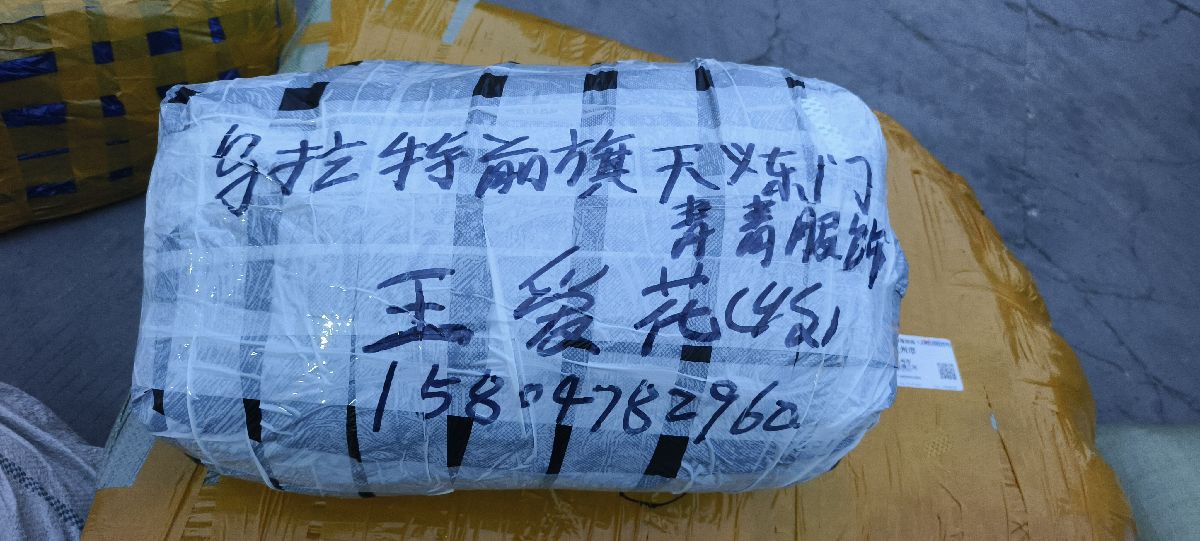 乌拉特前旗天炼门
青青服饰
王爱花(收)
15804782960